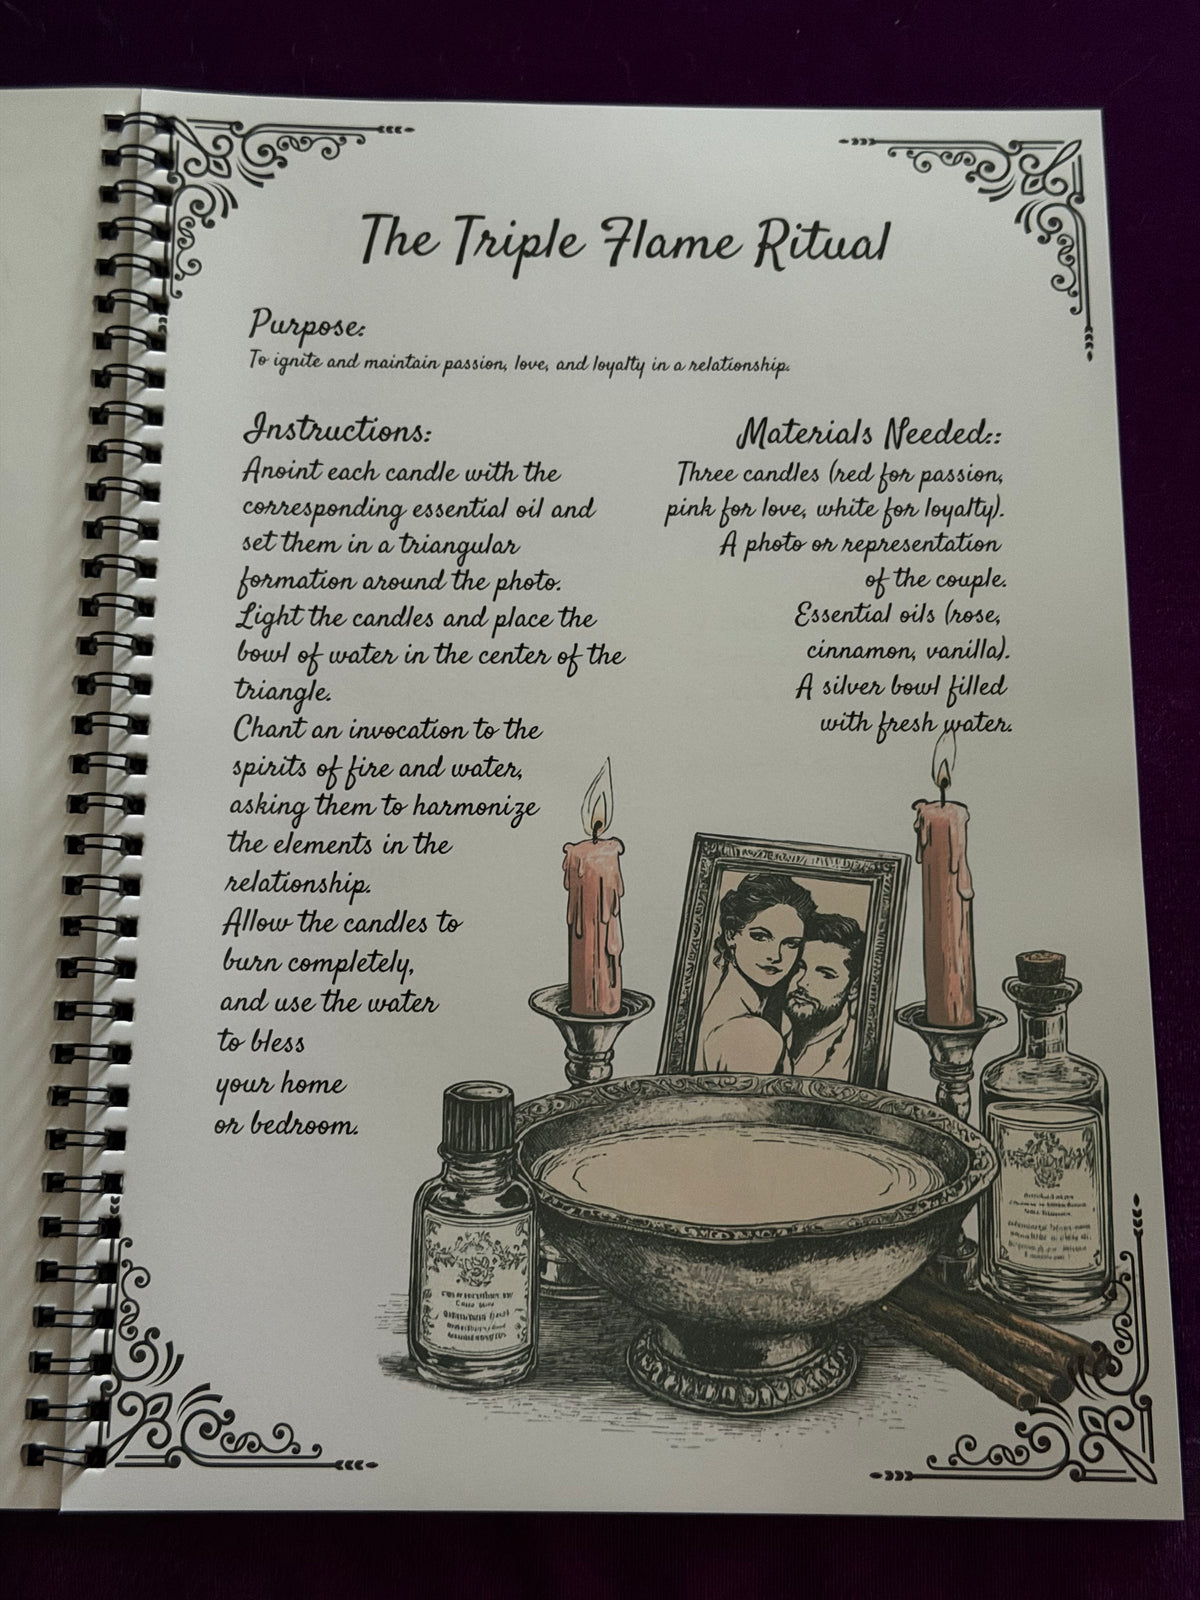 The Triple Flame Ritual
Purpose:
To ignite and maintain passion, love, and loyalty in a relationship.
Instructions:
Anoint each candle with the
corresponding essential oil and
set them in a triangular
formation around the photo.
Light the candles and place the
bowl of water in the center of the
triangle.
Chant an invocation to the
spirits of fire and water,
asking them to harmonize
the elements in the
relationship.
Allow the candles to
burn completely,
and use the water
to bless
your home
or bedroom.
Materials Needed::
Three candles (red for passion,
pink for love, white for loyalty).
A photo or representation
of the couple.
Essential oils (rose,
cinnamon, vanilla).
A silver bowl filled
with fresh water.